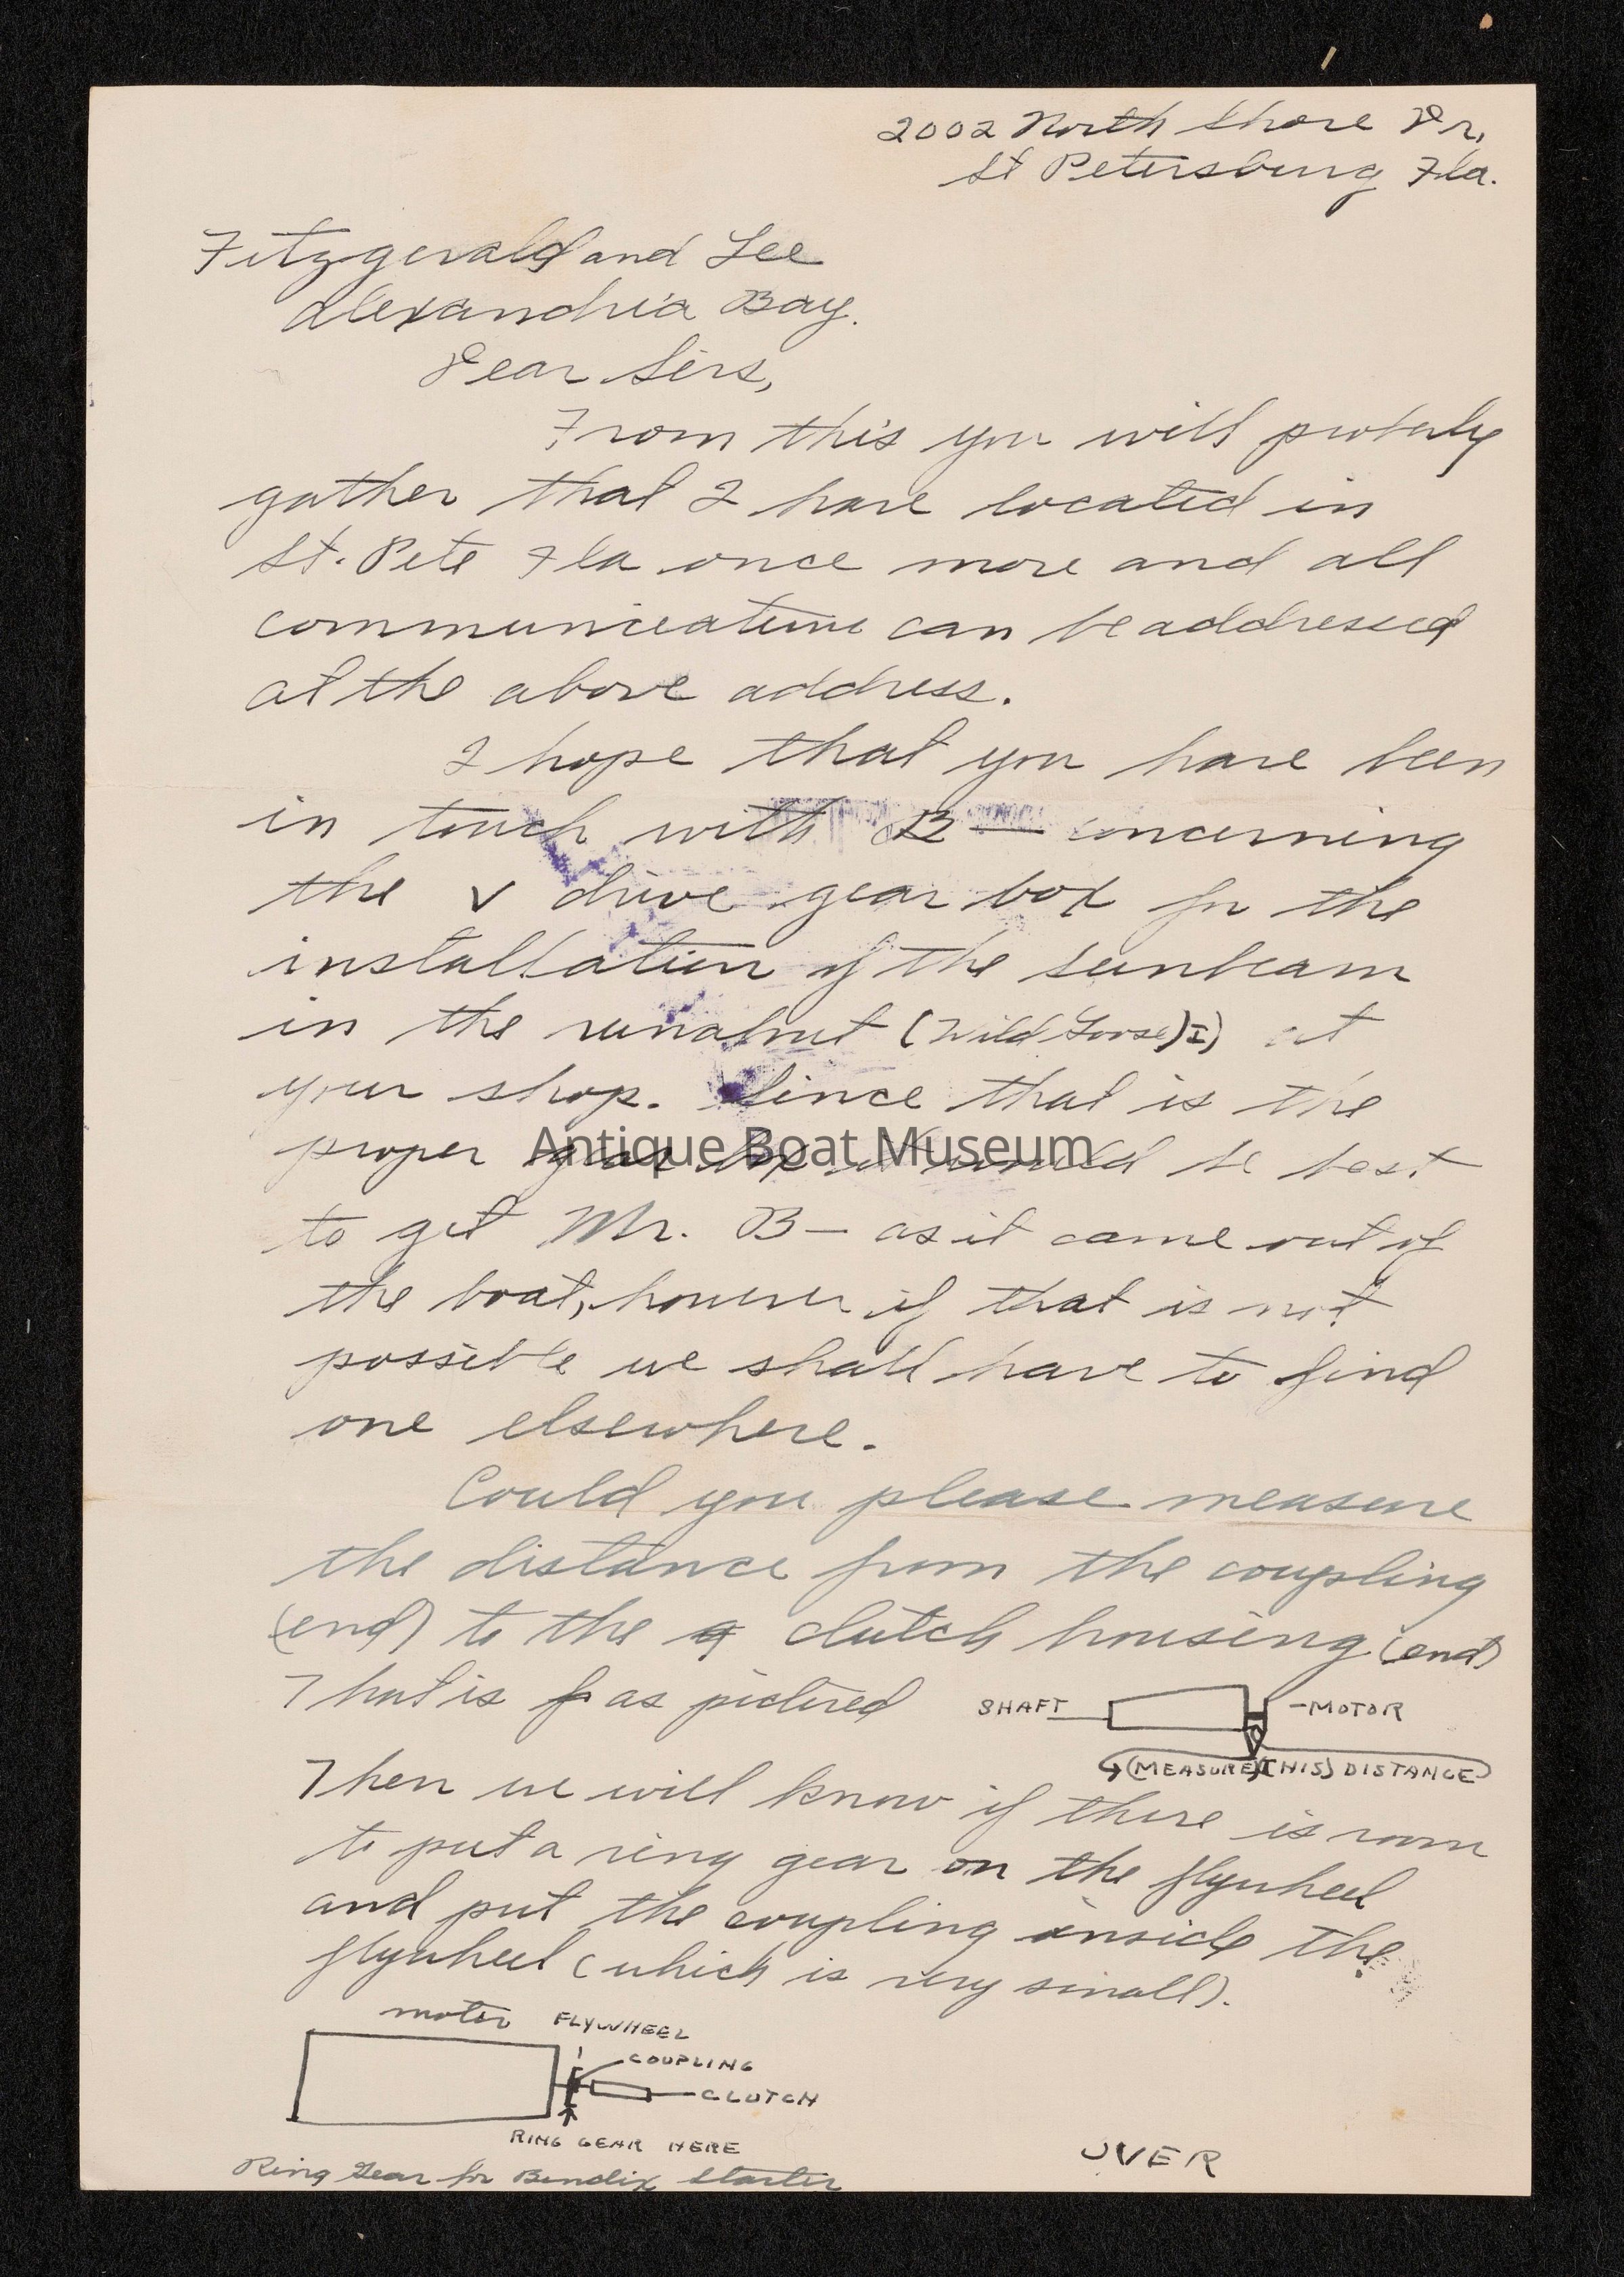 2002 North Shore Dr,
St Petersburg Fla.
Fitzgerald and Lee
Alexandria Bay.
Dear Sirs,
From this you will probaly
gather that I have located in
St. Pete Fla once more and all
communications can be addressed
at the above address.
I hope that you have been
in touch with B— concerning
the V drive gear box for the
installation of the Sunbeam
in the runabout (Wild Goose) I) at
your shop. Since that is the
proper gear box it would be best
to get Mr. B— as it came out of
the boat, however if that is not
possible we shall have to find
one elsewhere.
Could you please measure
the distance from the coupling
(end) to the clutch housing (end)
That is as pictured
SHAFT
-MOTOR
(MEASURE) (THIS) DISTANCE
Then we will know if there is room
to put a ring gear on the flywheel
and put the coupling inside the
flywheel (which is very small).
motor FLYWHEEL
COUPLING
CLUTCH
RING GEAR HERE
Ring Gear for Bendix Starter
OVER
Antique Boat Museum